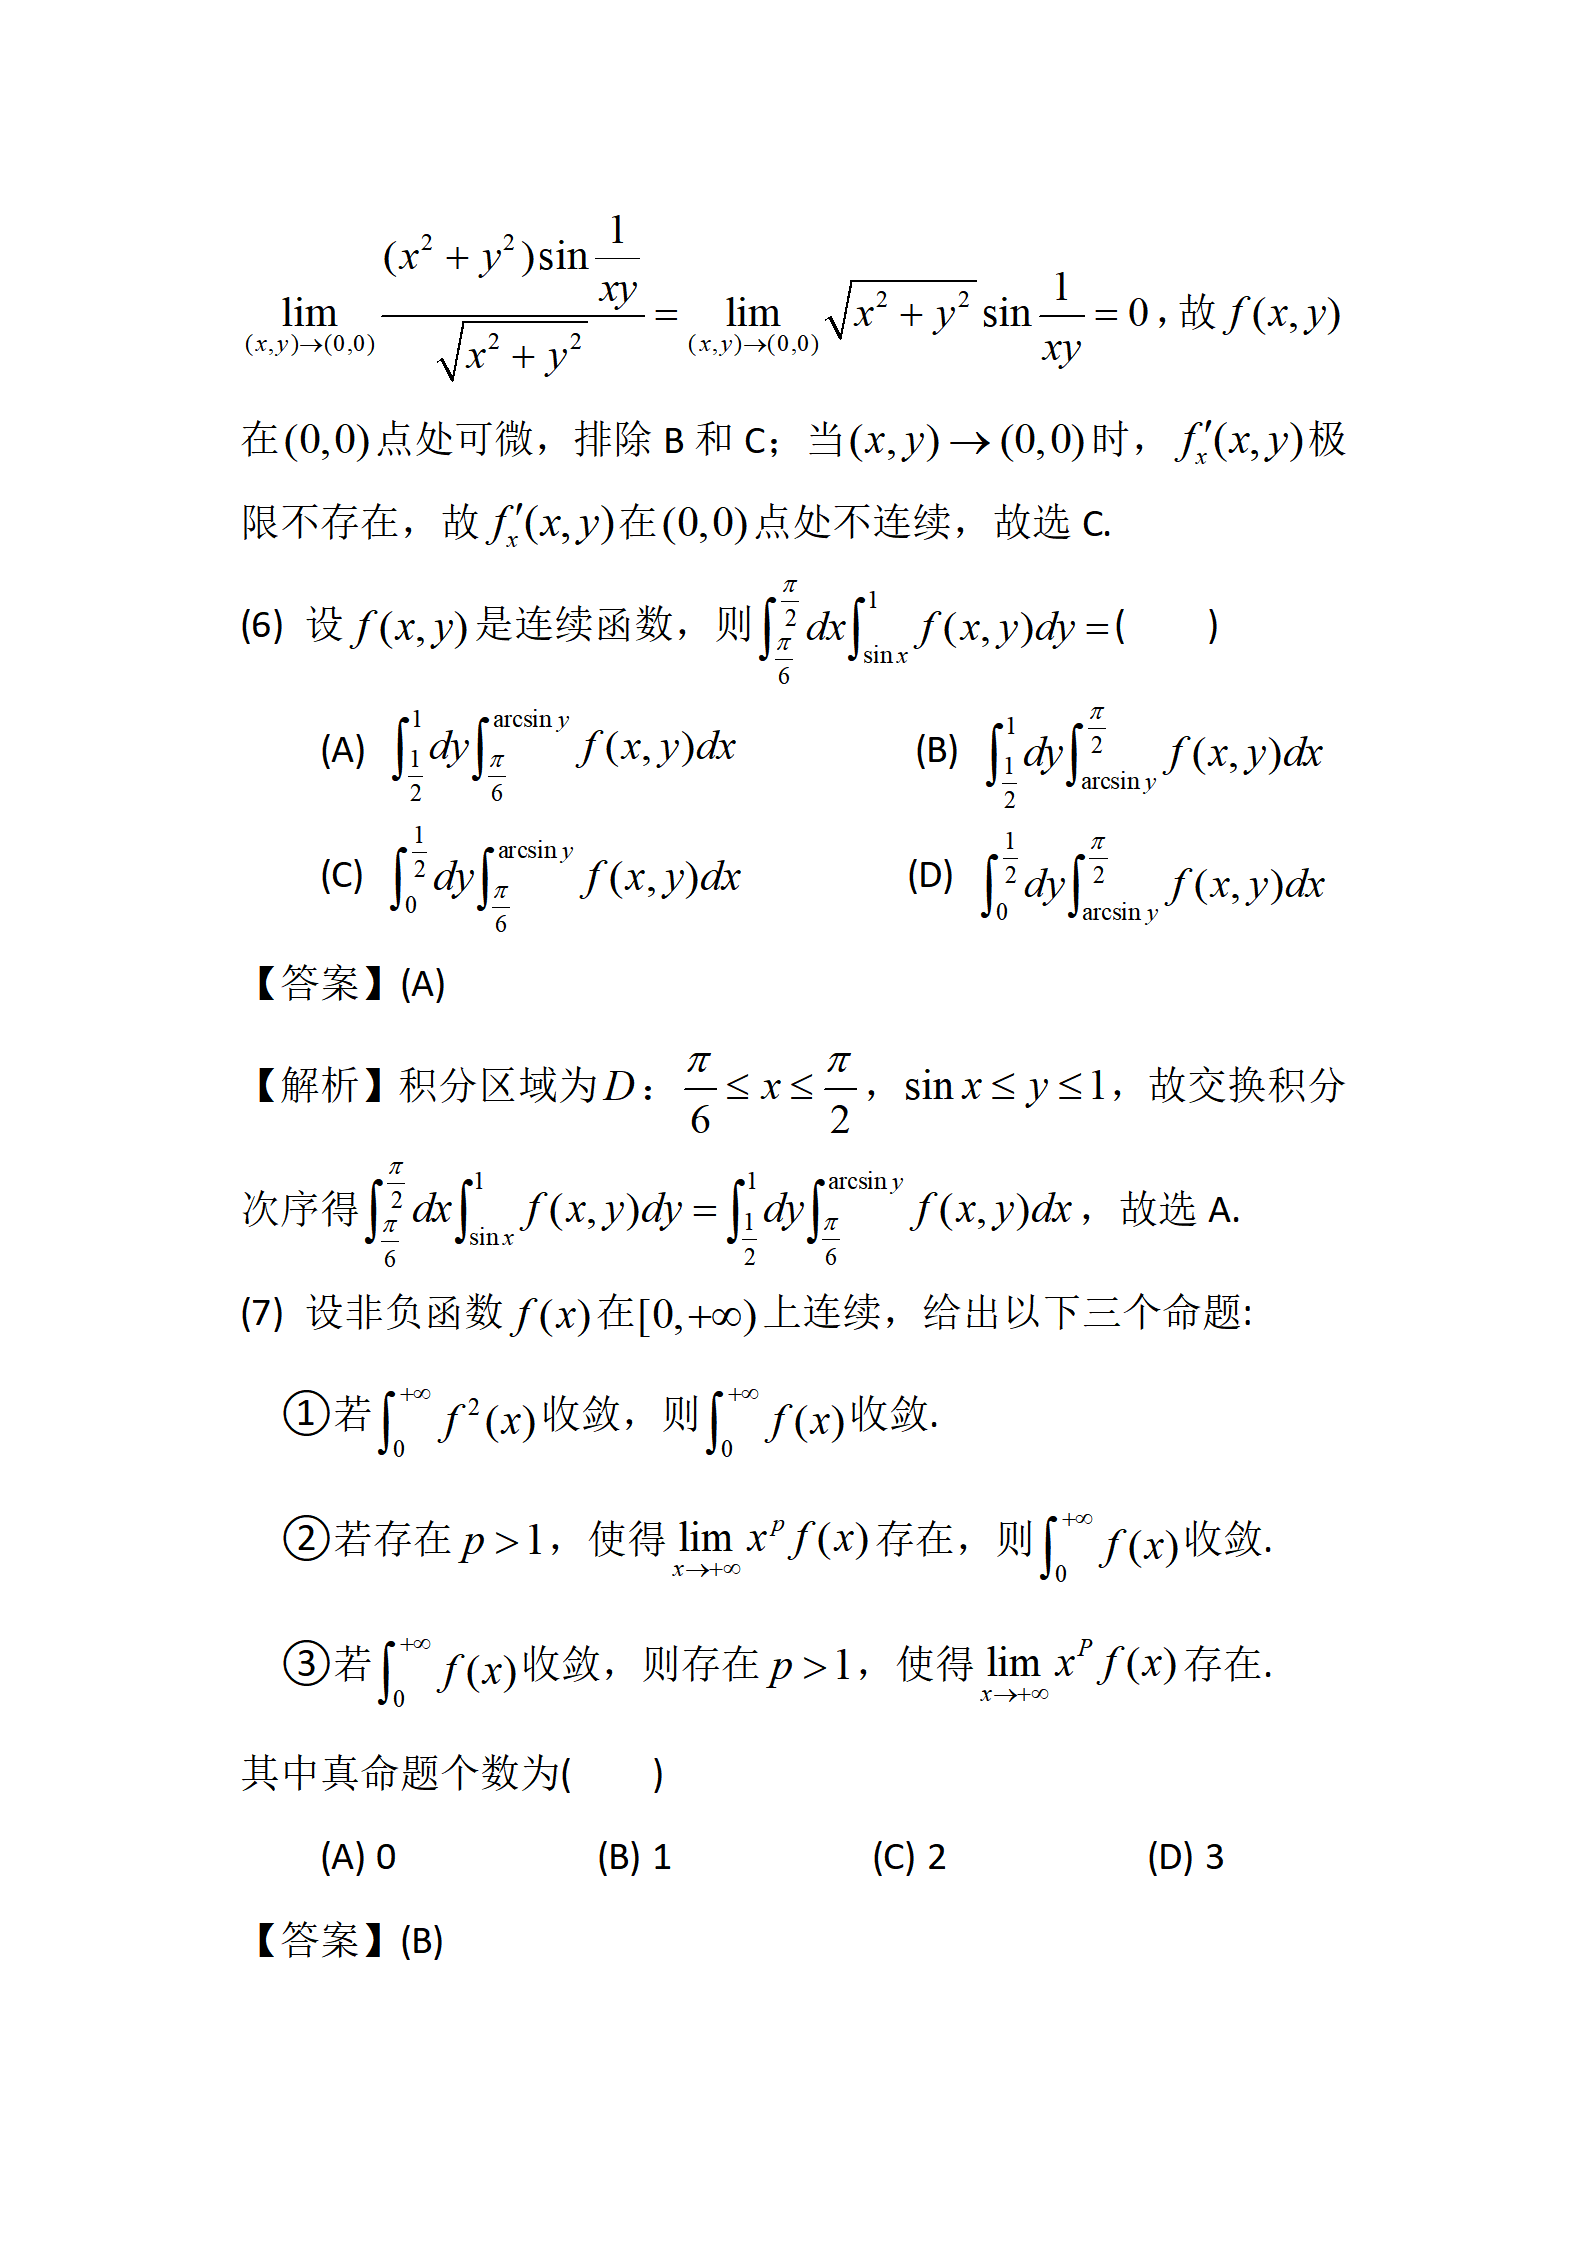 $\lim\limits_{(x,y)\to(0,0)}\dfrac{(x^2+y^2)\sin\dfrac{1}{xy}}{\sqrt{x^2+y^2}}=\lim\limits_{(x,y)\to(0,0)}\sqrt{x^2+y^2}\sin\dfrac{1}{xy}=0$，故 $f(x,y)$
在$(0,0)$点处可微，排除 B 和 C；当$(x,y)\to(0,0)$时，$f'_x(x,y)$极
限不存在，故$f'_x(x,y)$在$(0,0)$点处不连续，故选 C.
(6) 设$f(x,y)$是连续函数，则$\int_{\frac{\pi}{6}}^{\frac{\pi}{2}}dx\int_{\sin x}^{1}f(x,y)dy=$( )
(A) $\int_{\frac{1}{2}}^{1}dy\int_{\frac{\pi}{6}}^{\arcsin y}f(x,y)dx$ (B) $\int_{\frac{1}{2}}^{1}dy\int_{\arcsin y}^{\frac{\pi}{2}}f(x,y)dx$
(C) $\int_{0}^{\frac{1}{2}}dy\int_{\frac{\pi}{6}}^{\arcsin y}f(x,y)dx$ (D) $\int_{0}^{\frac{1}{2}}dy\int_{\arcsin y}^{\frac{\pi}{2}}f(x,y)dx$
【答案】(A)
【解析】积分区域为$D$：$\dfrac{\pi}{6}\le x\le\dfrac{\pi}{2}$，$\sin x\le y\le 1$，故交换积分
次序得$\int_{\frac{\pi}{6}}^{\frac{\pi}{2}}dx\int_{\sin x}^{1}f(x,y)dy=\int_{\frac{1}{2}}^{1}dy\int_{\frac{\pi}{6}}^{\arcsin y}f(x,y)dx$，故选 A.
(7) 设非负函数$f(x)$在$[0,+\infty)$上连续，给出以下三个命题:
①若$\int_{0}^{+\infty}f^2(x)$收敛，则$\int_{0}^{+\infty}f(x)$收敛.
②若存在$p>1$，使得$\lim\limits_{x\to+\infty}x^p f(x)$存在，则$\int_{0}^{+\infty}f(x)$收敛.
③若$\int_{0}^{+\infty}f(x)$收敛，则存在$p>1$，使得$\lim\limits_{x\to+\infty}x^P f(x)$存在.
其中真命题个数为( )
(A) 0 (B) 1 (C) 2 (D) 3
【答案】(B)